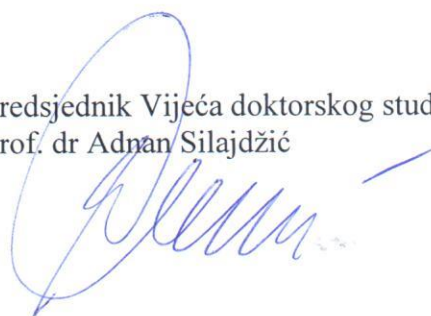 redsjednik Vijeća doktorskog stud
rof. dr Adnan Silajdžić